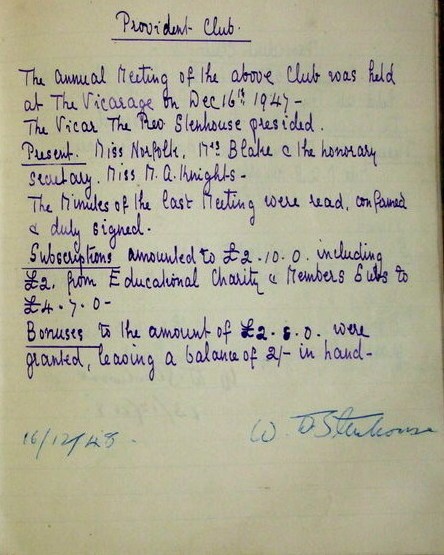 Provident Club.
The annual Meeting of the above Club was held
at The Vicarage on Dec 16th 1947-
The Vicar The Rev Stenhouse presided.
Present. Miss Norfolk, Mrs Blake & the honorary
Secretary. Miss M. A. Knights-
The Minutes of the last Meeting were read, confirmed
& duly signed-
Subscriptions amounted to £2.10.0. including
£2. from Educational Charity & Members Subs to
£4.7.0-
Bonuses to the amount of £2.8.0. were
granted, leaving a balance of 2/- in hand-
16/12/48. W. Stenhouse